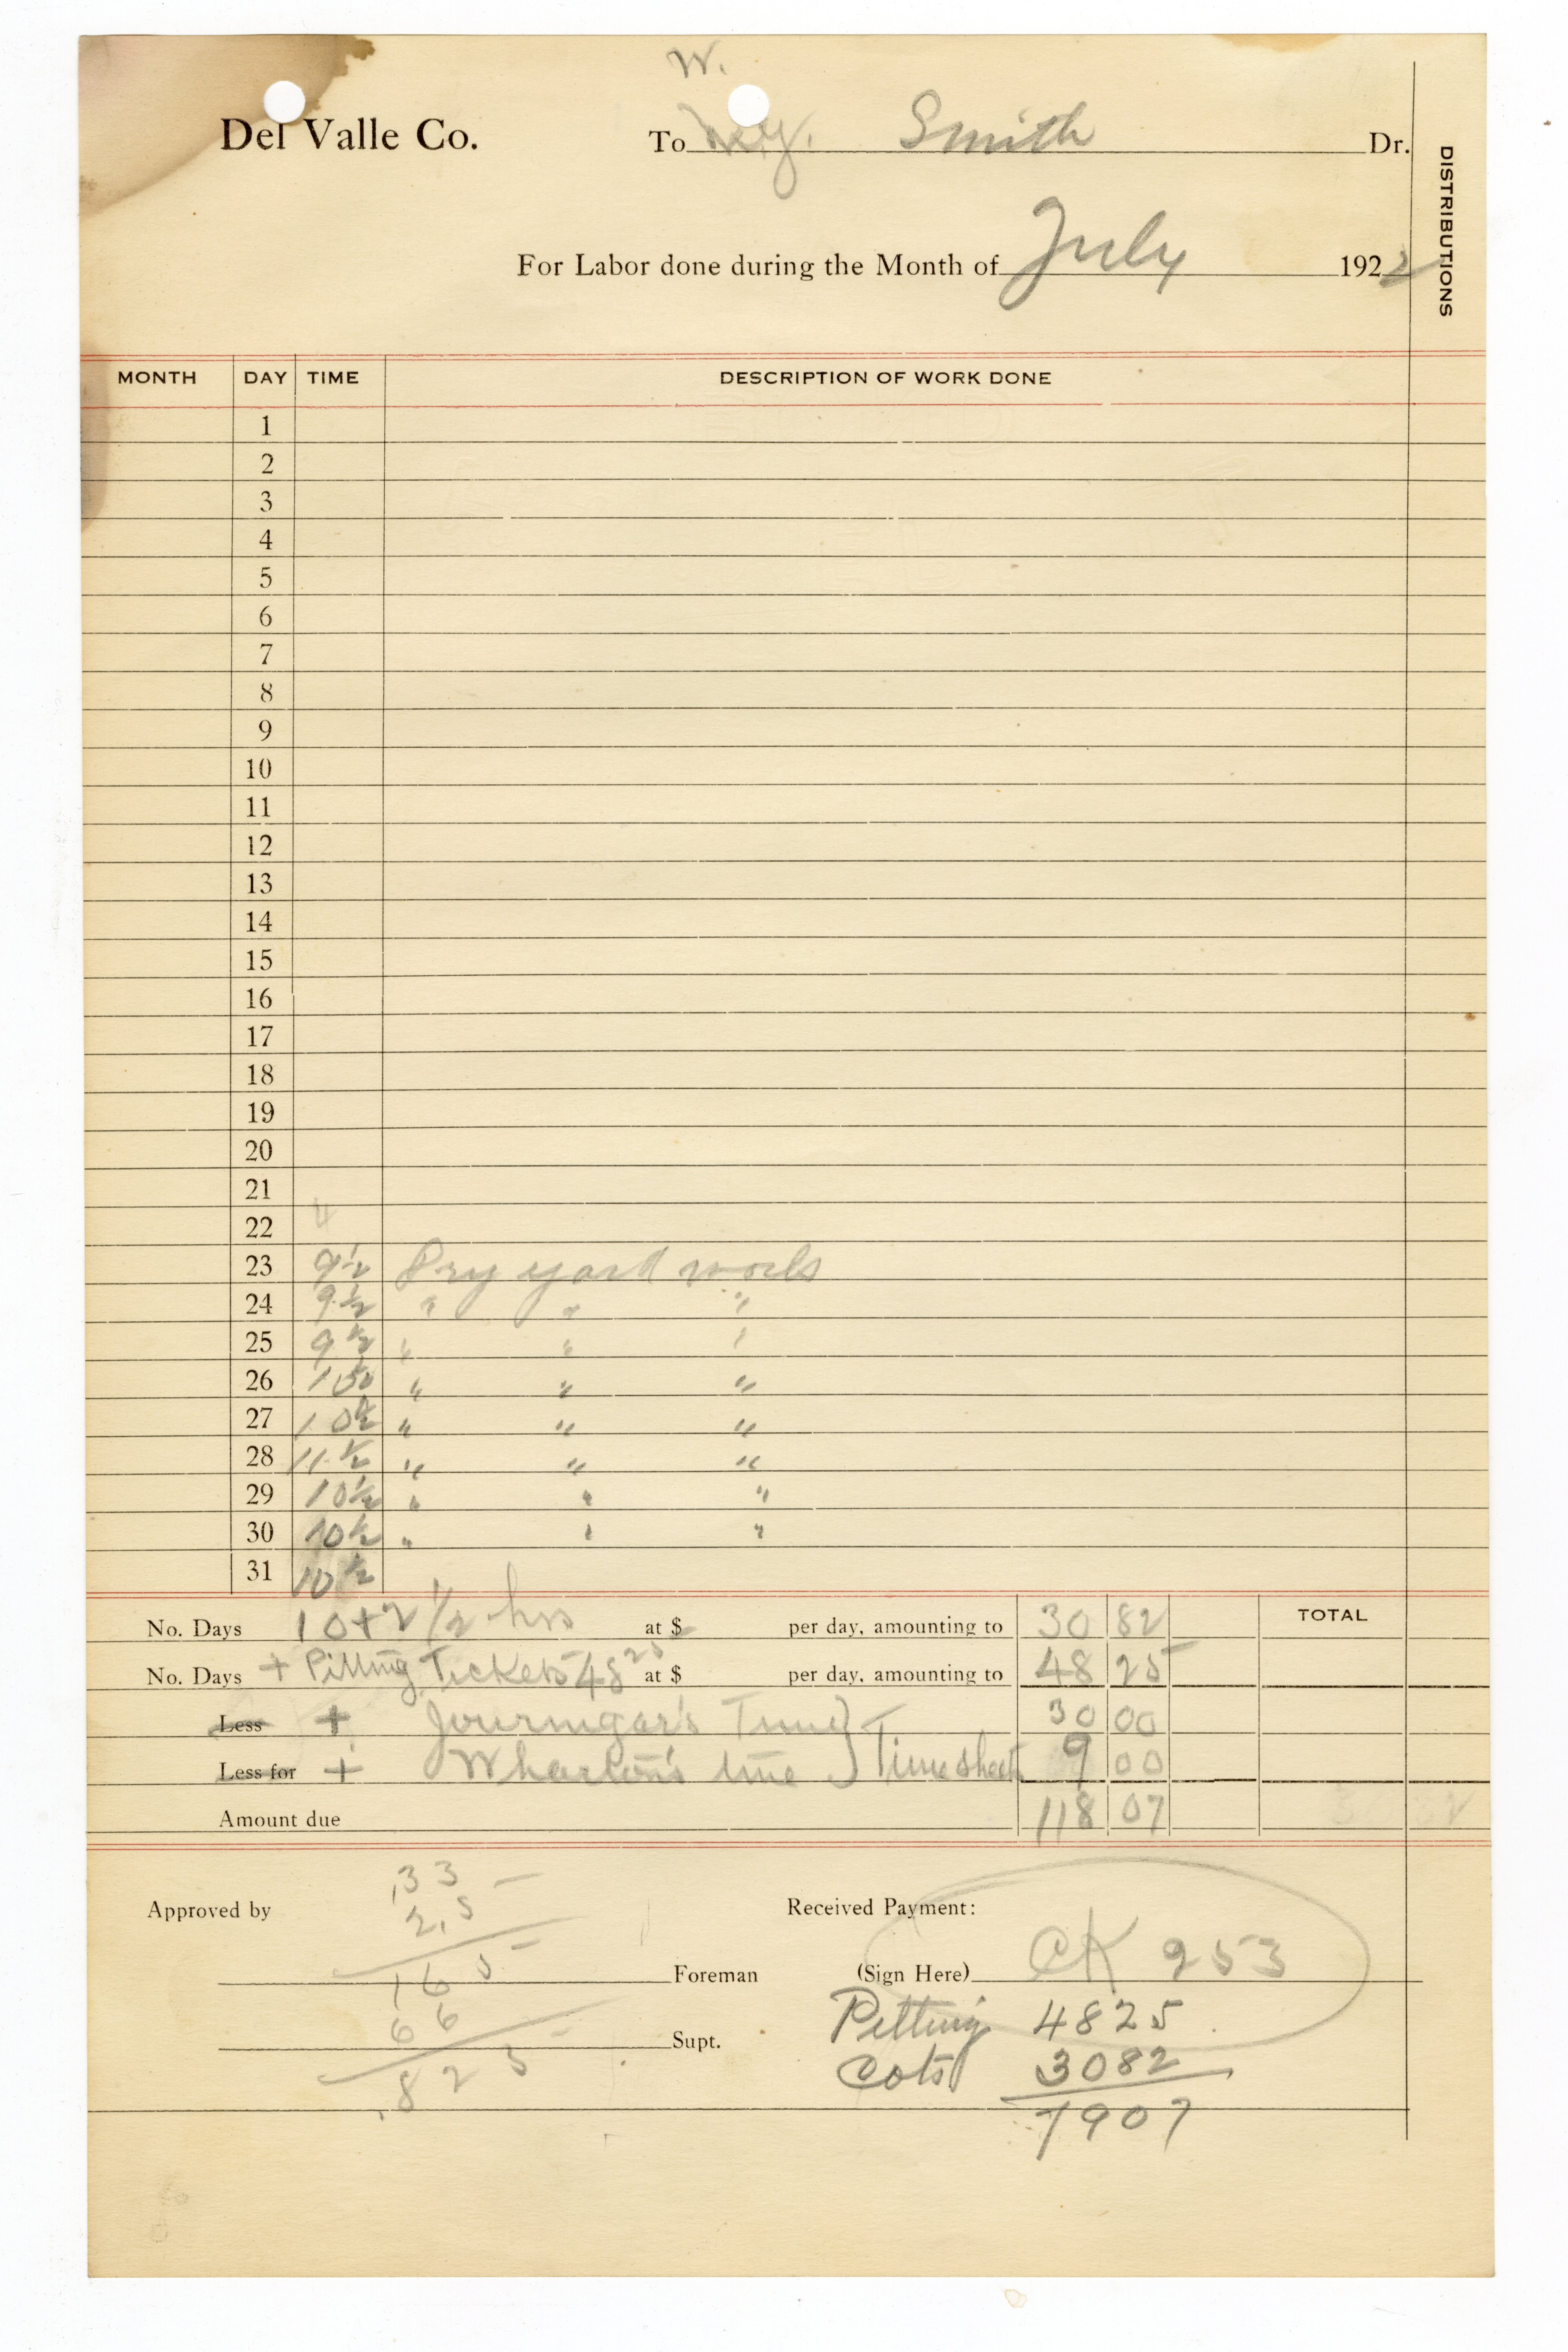 W.
Del Valle Co. To W.y. Smith Dr.
DISTRIBUTIONS
For Labor done during the Month of July 1922
MONTH DAY TIME DESCRIPTION OF WORK DONE
1
2
3
4
5
6
7
8
9
10
11
12
13
14
15
16
17
18
19
20
21
22 4
23 9 1/2 Dry yard work
24 9 1/2 " " "
25 9 1/2 " " "
26 " " "
27 10 1/2 " " "
28 11 1/2 " " "
29 10 1/2 " " "
30 10 1/2 " " "
31 10 1/2
No. Days 10 + 2 1/2 hrs at $ per day, amounting to 30 82 TOTAL
No. Days + Pitting Tickets 48 25 at $ per day, amounting to 48 25
Less + Journigar's Time } 30 00
Less for + Wharton's time } Time sheets 9 00
Amount due 118 07
.33
2.5
Approved by Received Payment:
165
Foreman (Sign Here) CK 253
66
Supt. Pitting 4825
.825 Cots 3082
7907